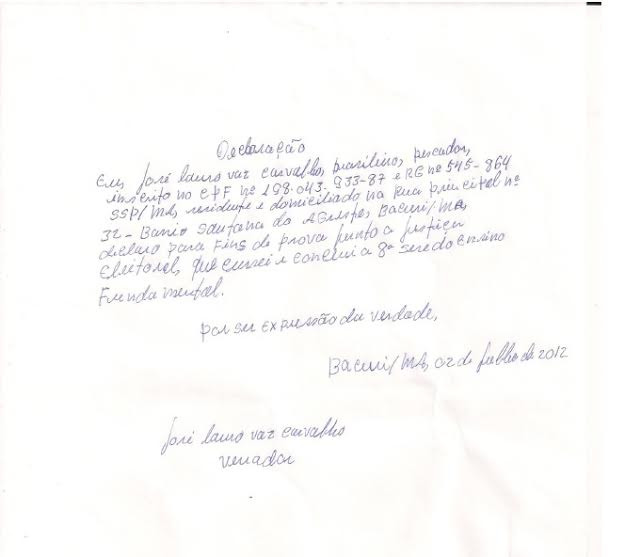 Declaração
Eu, José lauro vaz carvalho, brasileiro, pescador,
inscrito no CPF nº 198.043.933-87 e RG nº 545-864
SSP/MA, residente e domiciliado na Rua principal nº
32 - Bairro Santana do Agreste, Bacuri/MA,
declaro para Fins de prova junto a justiça
Eleitoral, que cursei e conclui a 8ª serie do Ensino
Fundamental.
por ser expressão da verdade,
Bacuri/MA, 02 de julho de 2012
José lauro vaz carvalho
Vereador